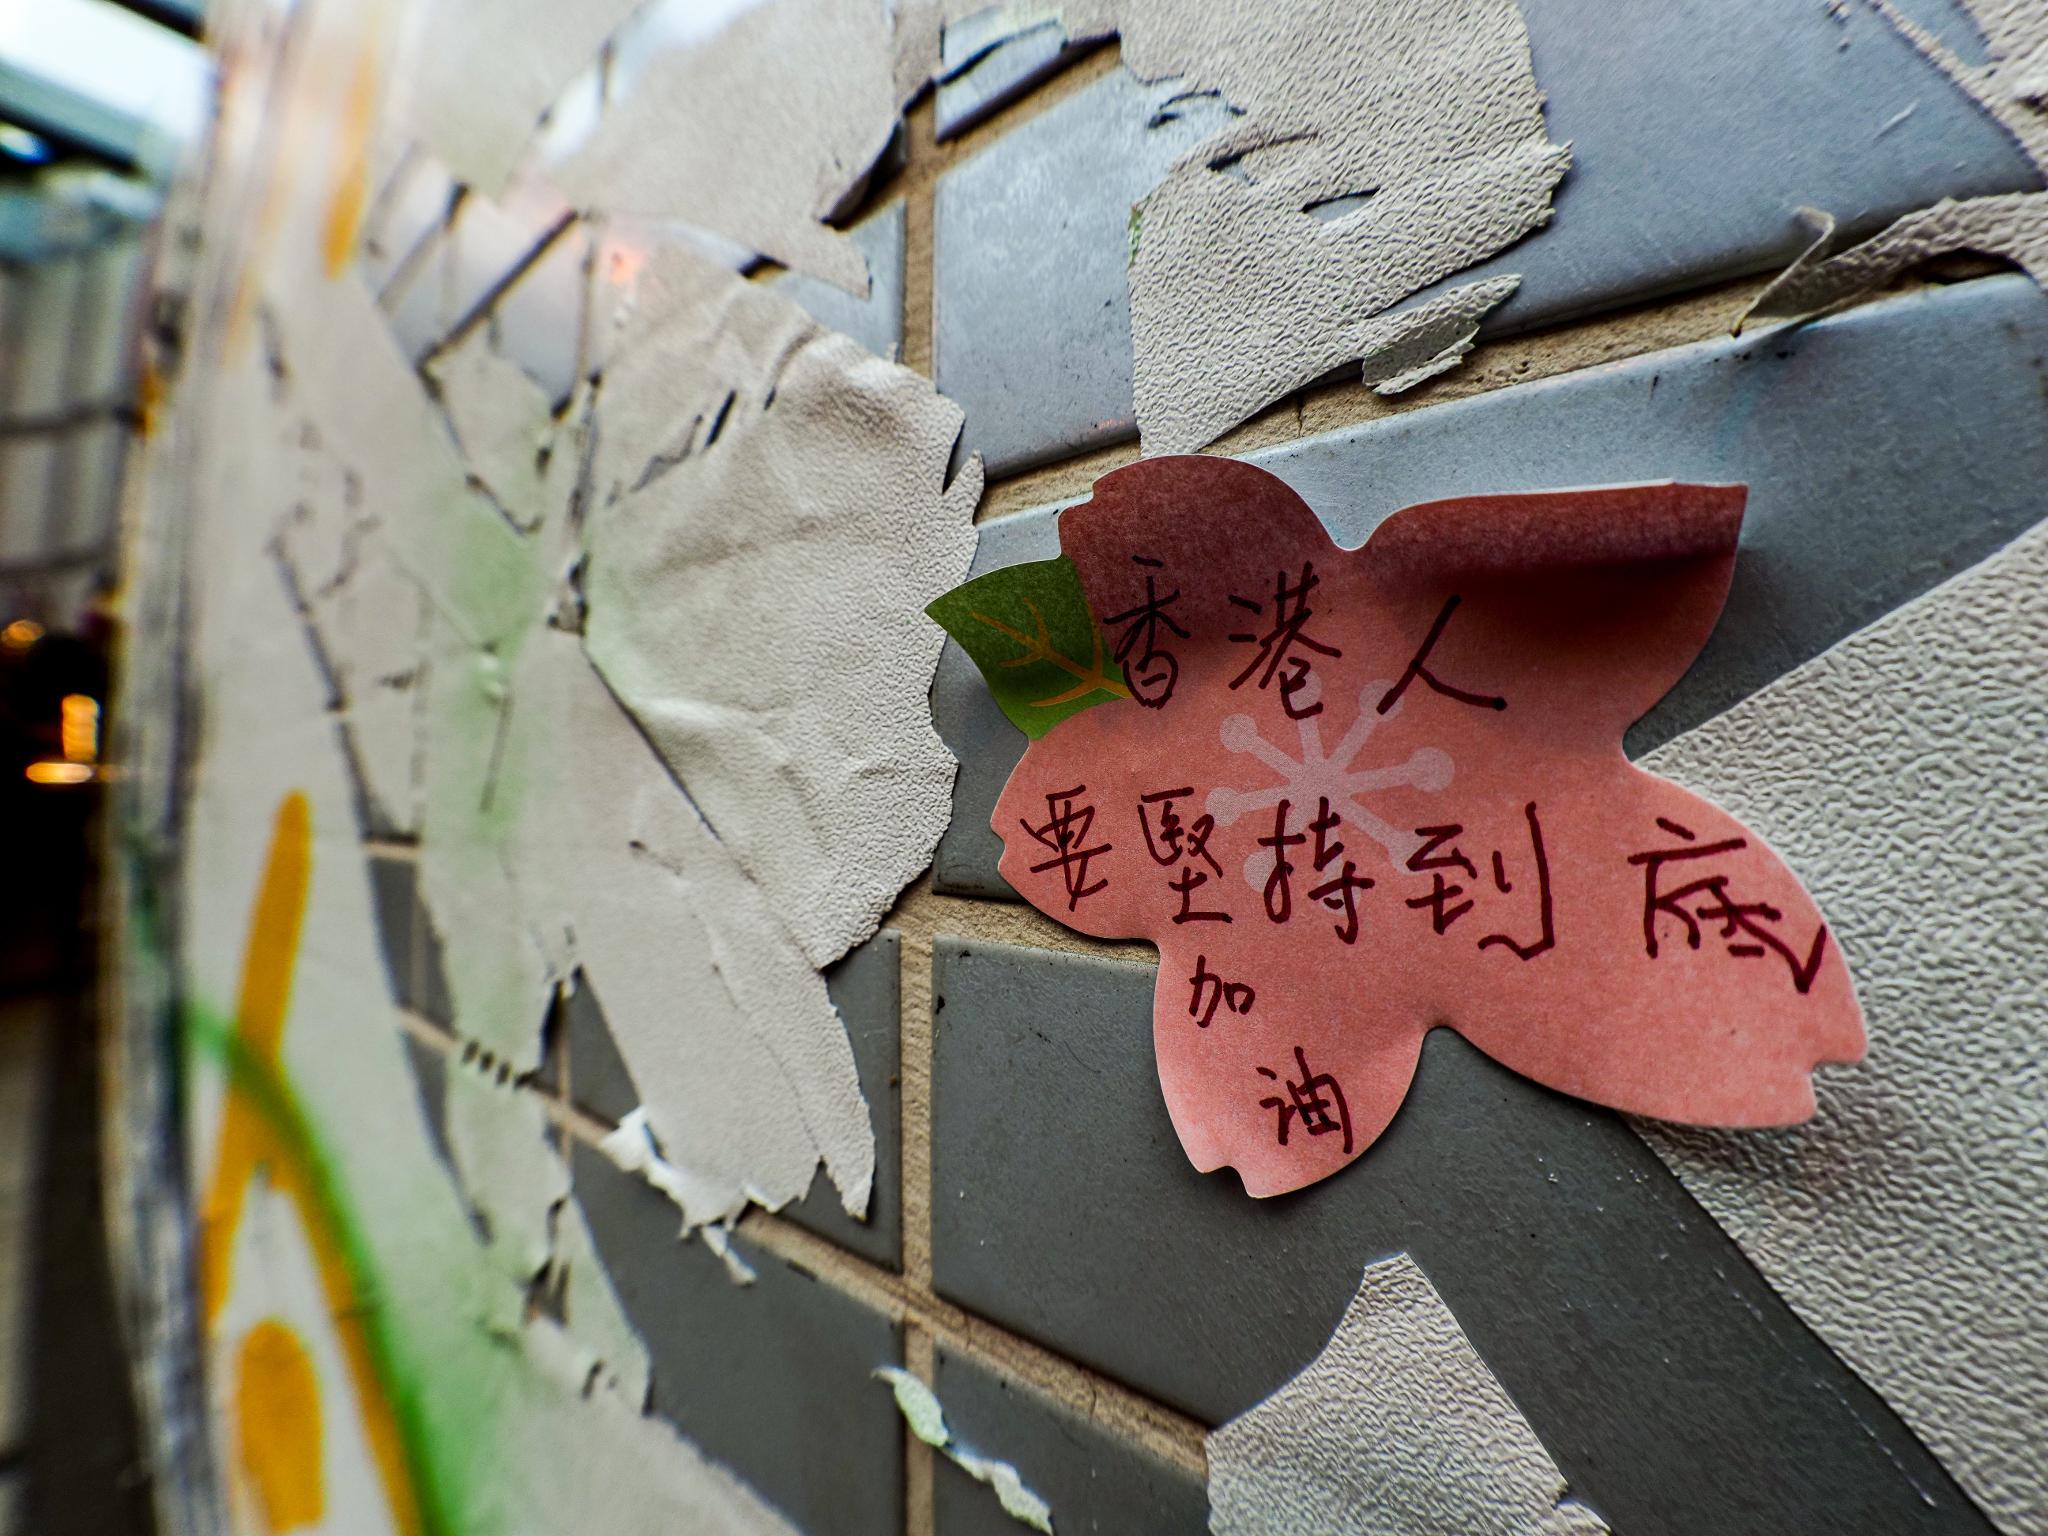 香港人
要堅持到底
加
油